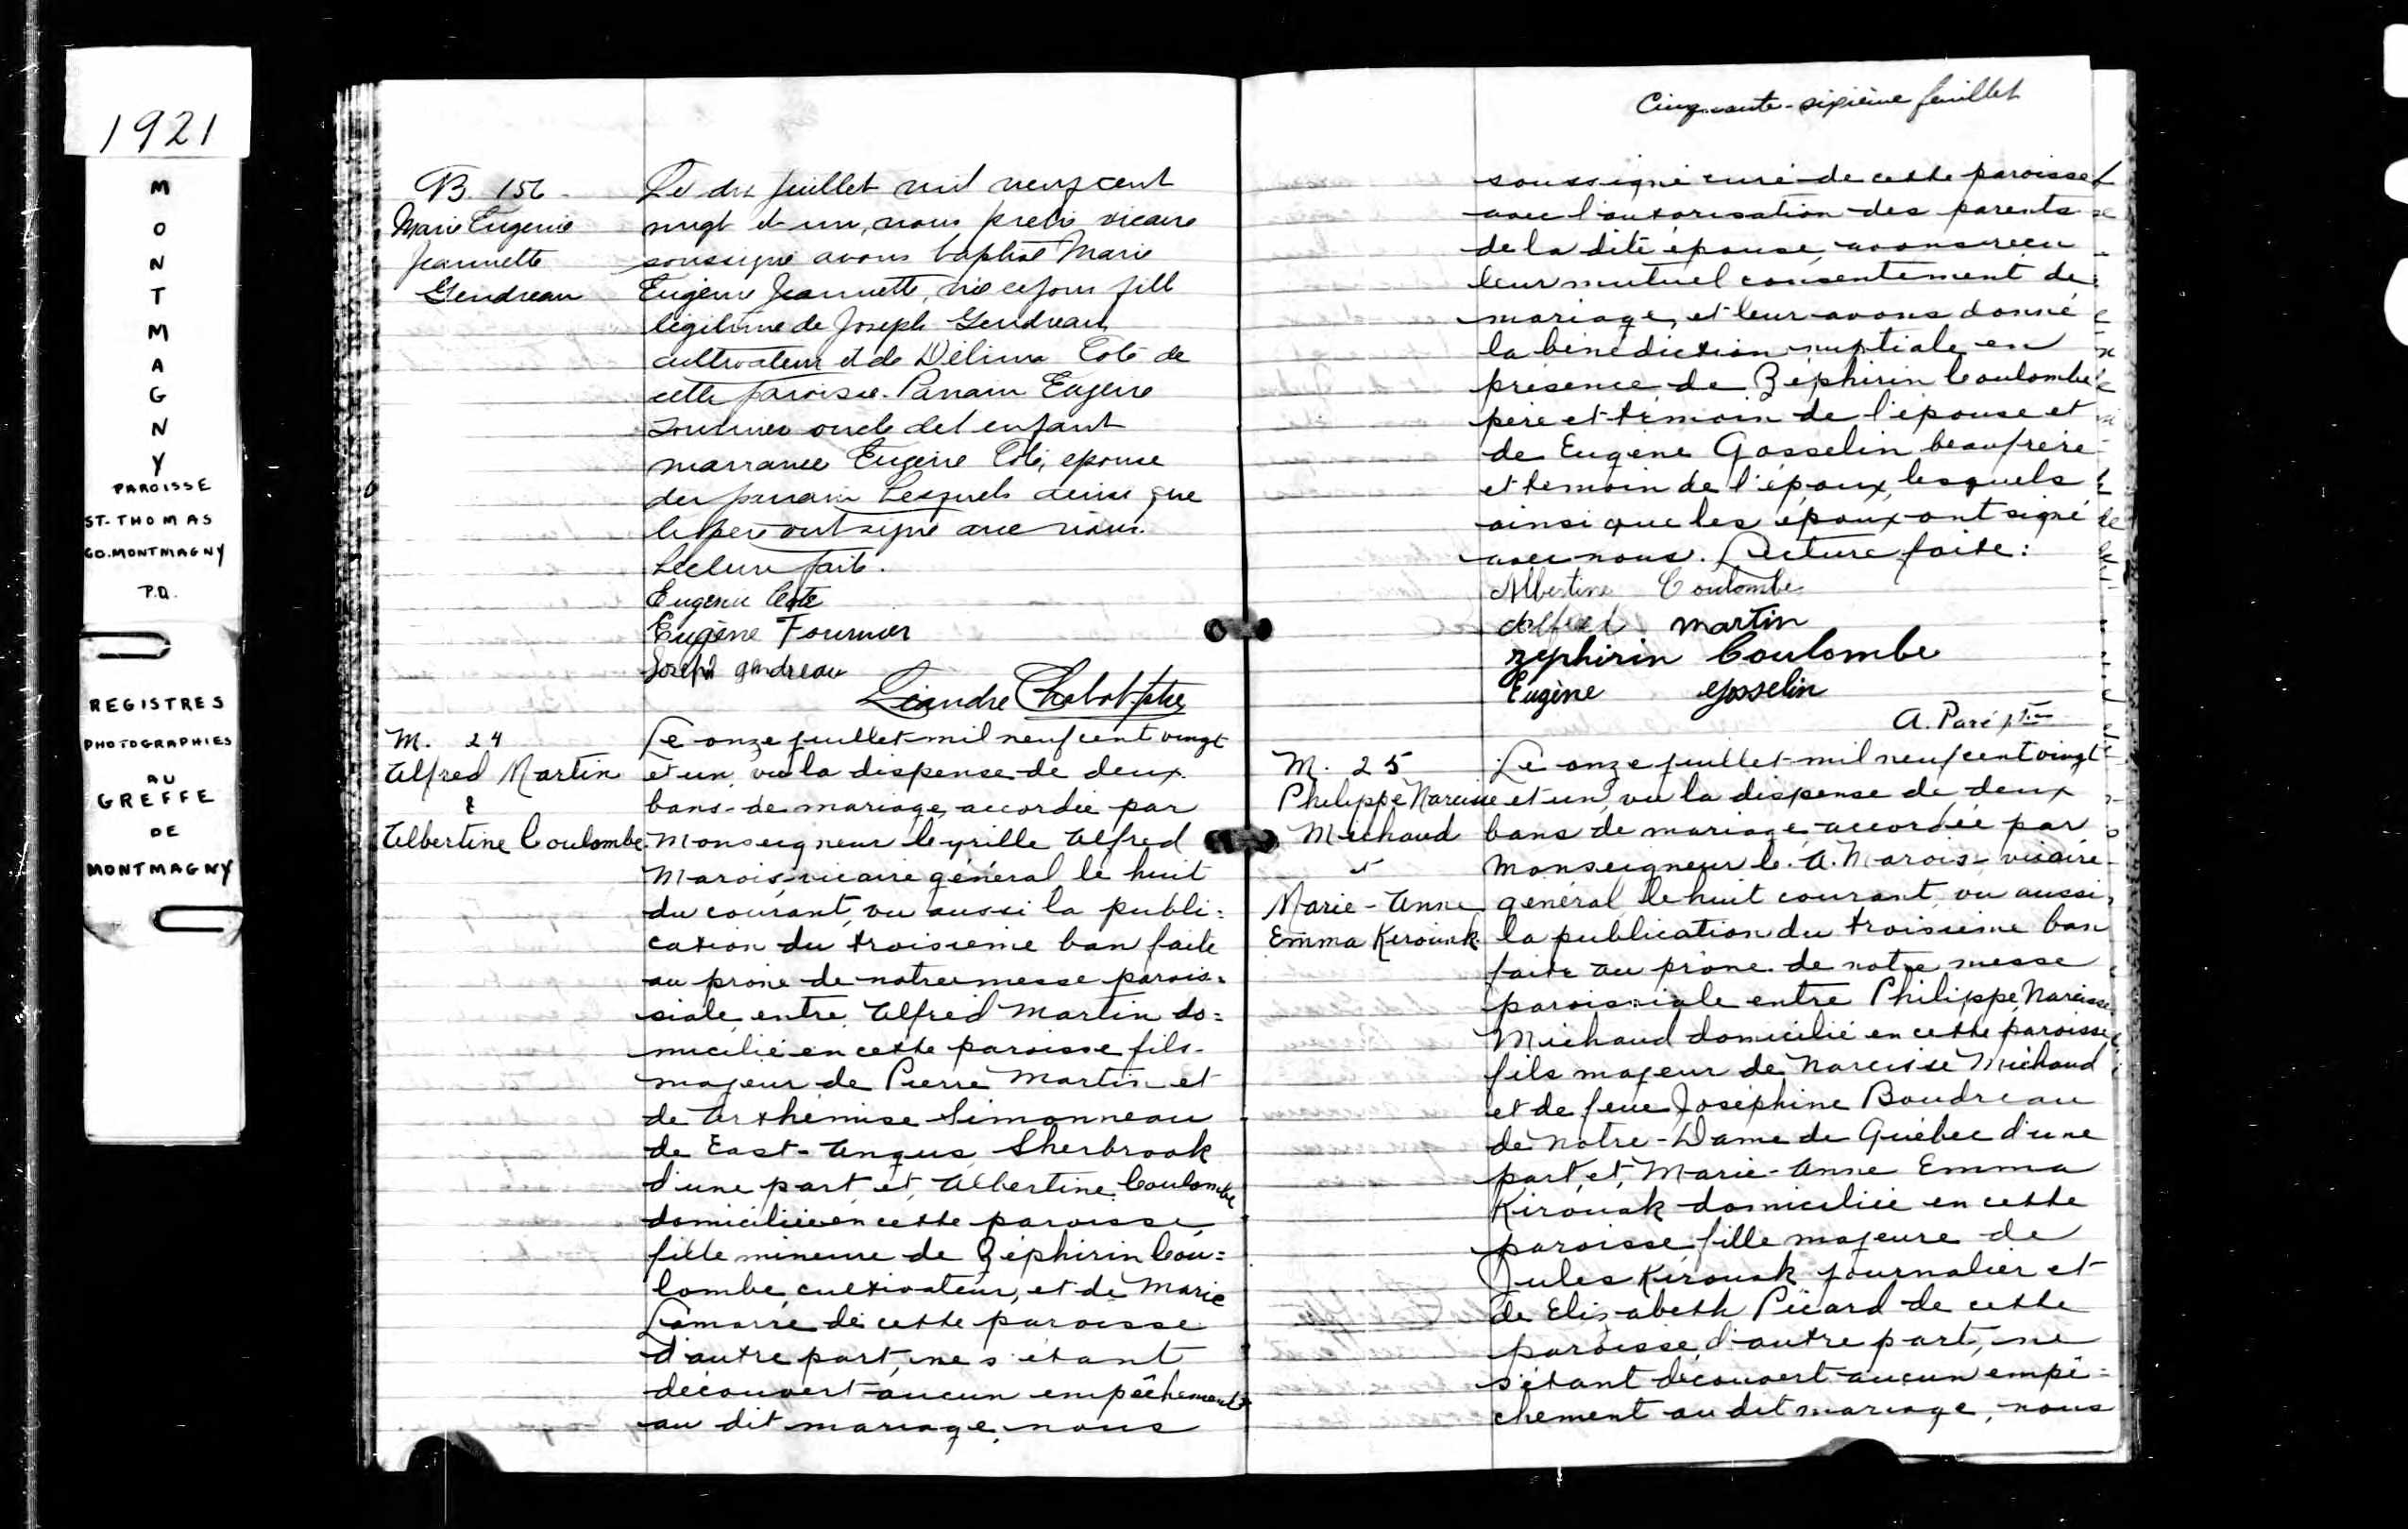 1921
MONTMAGNY
PAROISSE
ST-THOMAS
CO. MONTMAGNY
P.Q.
REGISTRES
PHOTOGRAPHIES
AU
GREFFE
DE
MONTMAGNY
B. 156
Marie Eugenie
Jeannette
Gendreau
Le dix juillet mil neuf cent
vingt et un, nous pretre vicaire
soussigné avons baptisé Marie
Eugenie Jeannette, née ce jour fille
légitime de Joseph Gendreau
cultivateur et de Délima Coté de
cette paroisse. Parrain Eugène
Fournier oncle de l enfant
marraine Eugenie Coté, epouse
du parrain lesquels ainsi que
le pere ont signé avec nous.
Lecture faite.
Eugenie Coté
Eugène Fournier
Joseph Gendreau
Léandre Chabot ptre
M. 24
Alfred Martin
&
Albertine Coulombe
Le onze juillet mil neuf cent vingt
et un, vu la dispense de deux
bans de mariage, accordée par
Monseigneur Cyrille Alfred
Marois, vicaire général le huit
du courant, vu aussi la publi=
cation du troisième ban faite
au prone de notre messe parois=
siale, entre Alfred Martin do=
micilié en cette paroisse fils
majeur de Pierre Martin et
de Arthémise Simonneau
de East-Angus Sherbrook
d'une part, et, Albertine Coulombe
domiciliée en cette paroisse,
fille mineure de Zéphirin Cou=
lombe, cultivateur, et de Marie
Lamarre de cette paroisse
d'autre part, ne s'étant
découvert aucun empêchement
au dit mariage, nous
Cinquante-sixième feuillet
soussigné curé de cette paroisse
avec l'autorisation des parents
de la dite épouse, avons reçu
leur mutuel consentement de
mariage, et leur avons donné
la bénédiction nuptiale en
présence de Zéphirin Coulombe
père et témoin de l'épouse et
de Eugène Gosselin beaufrère
et temoin de l'époux, lesquels
ainsi que les époux ont signé
avec nous. Lecture faite:
Albertine Coulombe
Alfred martin
Zéphirin Coulombe
Eugène Gosselin
A. Paré ptre
M. 25
Philippe Narcisse
Michaud
et
Marie-Anne
Emma Kerouak
Le onze juillet mil neuf cent vingt
et un, vu la dispense de deux
bans de mariage accordée par
Monseigneur C. A. Marois vicaire
général le huit courant, vu aussi,
la publication du troisième ban
faite au prône de notre messe
paroissiale entre Philippe, Narcisse
Michaud domicilié en cette paroisse,
fils majeur de Narcisse Michaud
et de feue Joséphine Boudreau
de Notre-Dame de Québec d'une
part, et, Marie-Anne Emma
Kirouak domiciliée en cette
paroisse, fille majeure de
Jules Kirouak journalier et
de Elizabeth Picard de cette
paroisse, d'autre part, ne
s'étant découvert aucun empê=
chement au dit mariage, nous